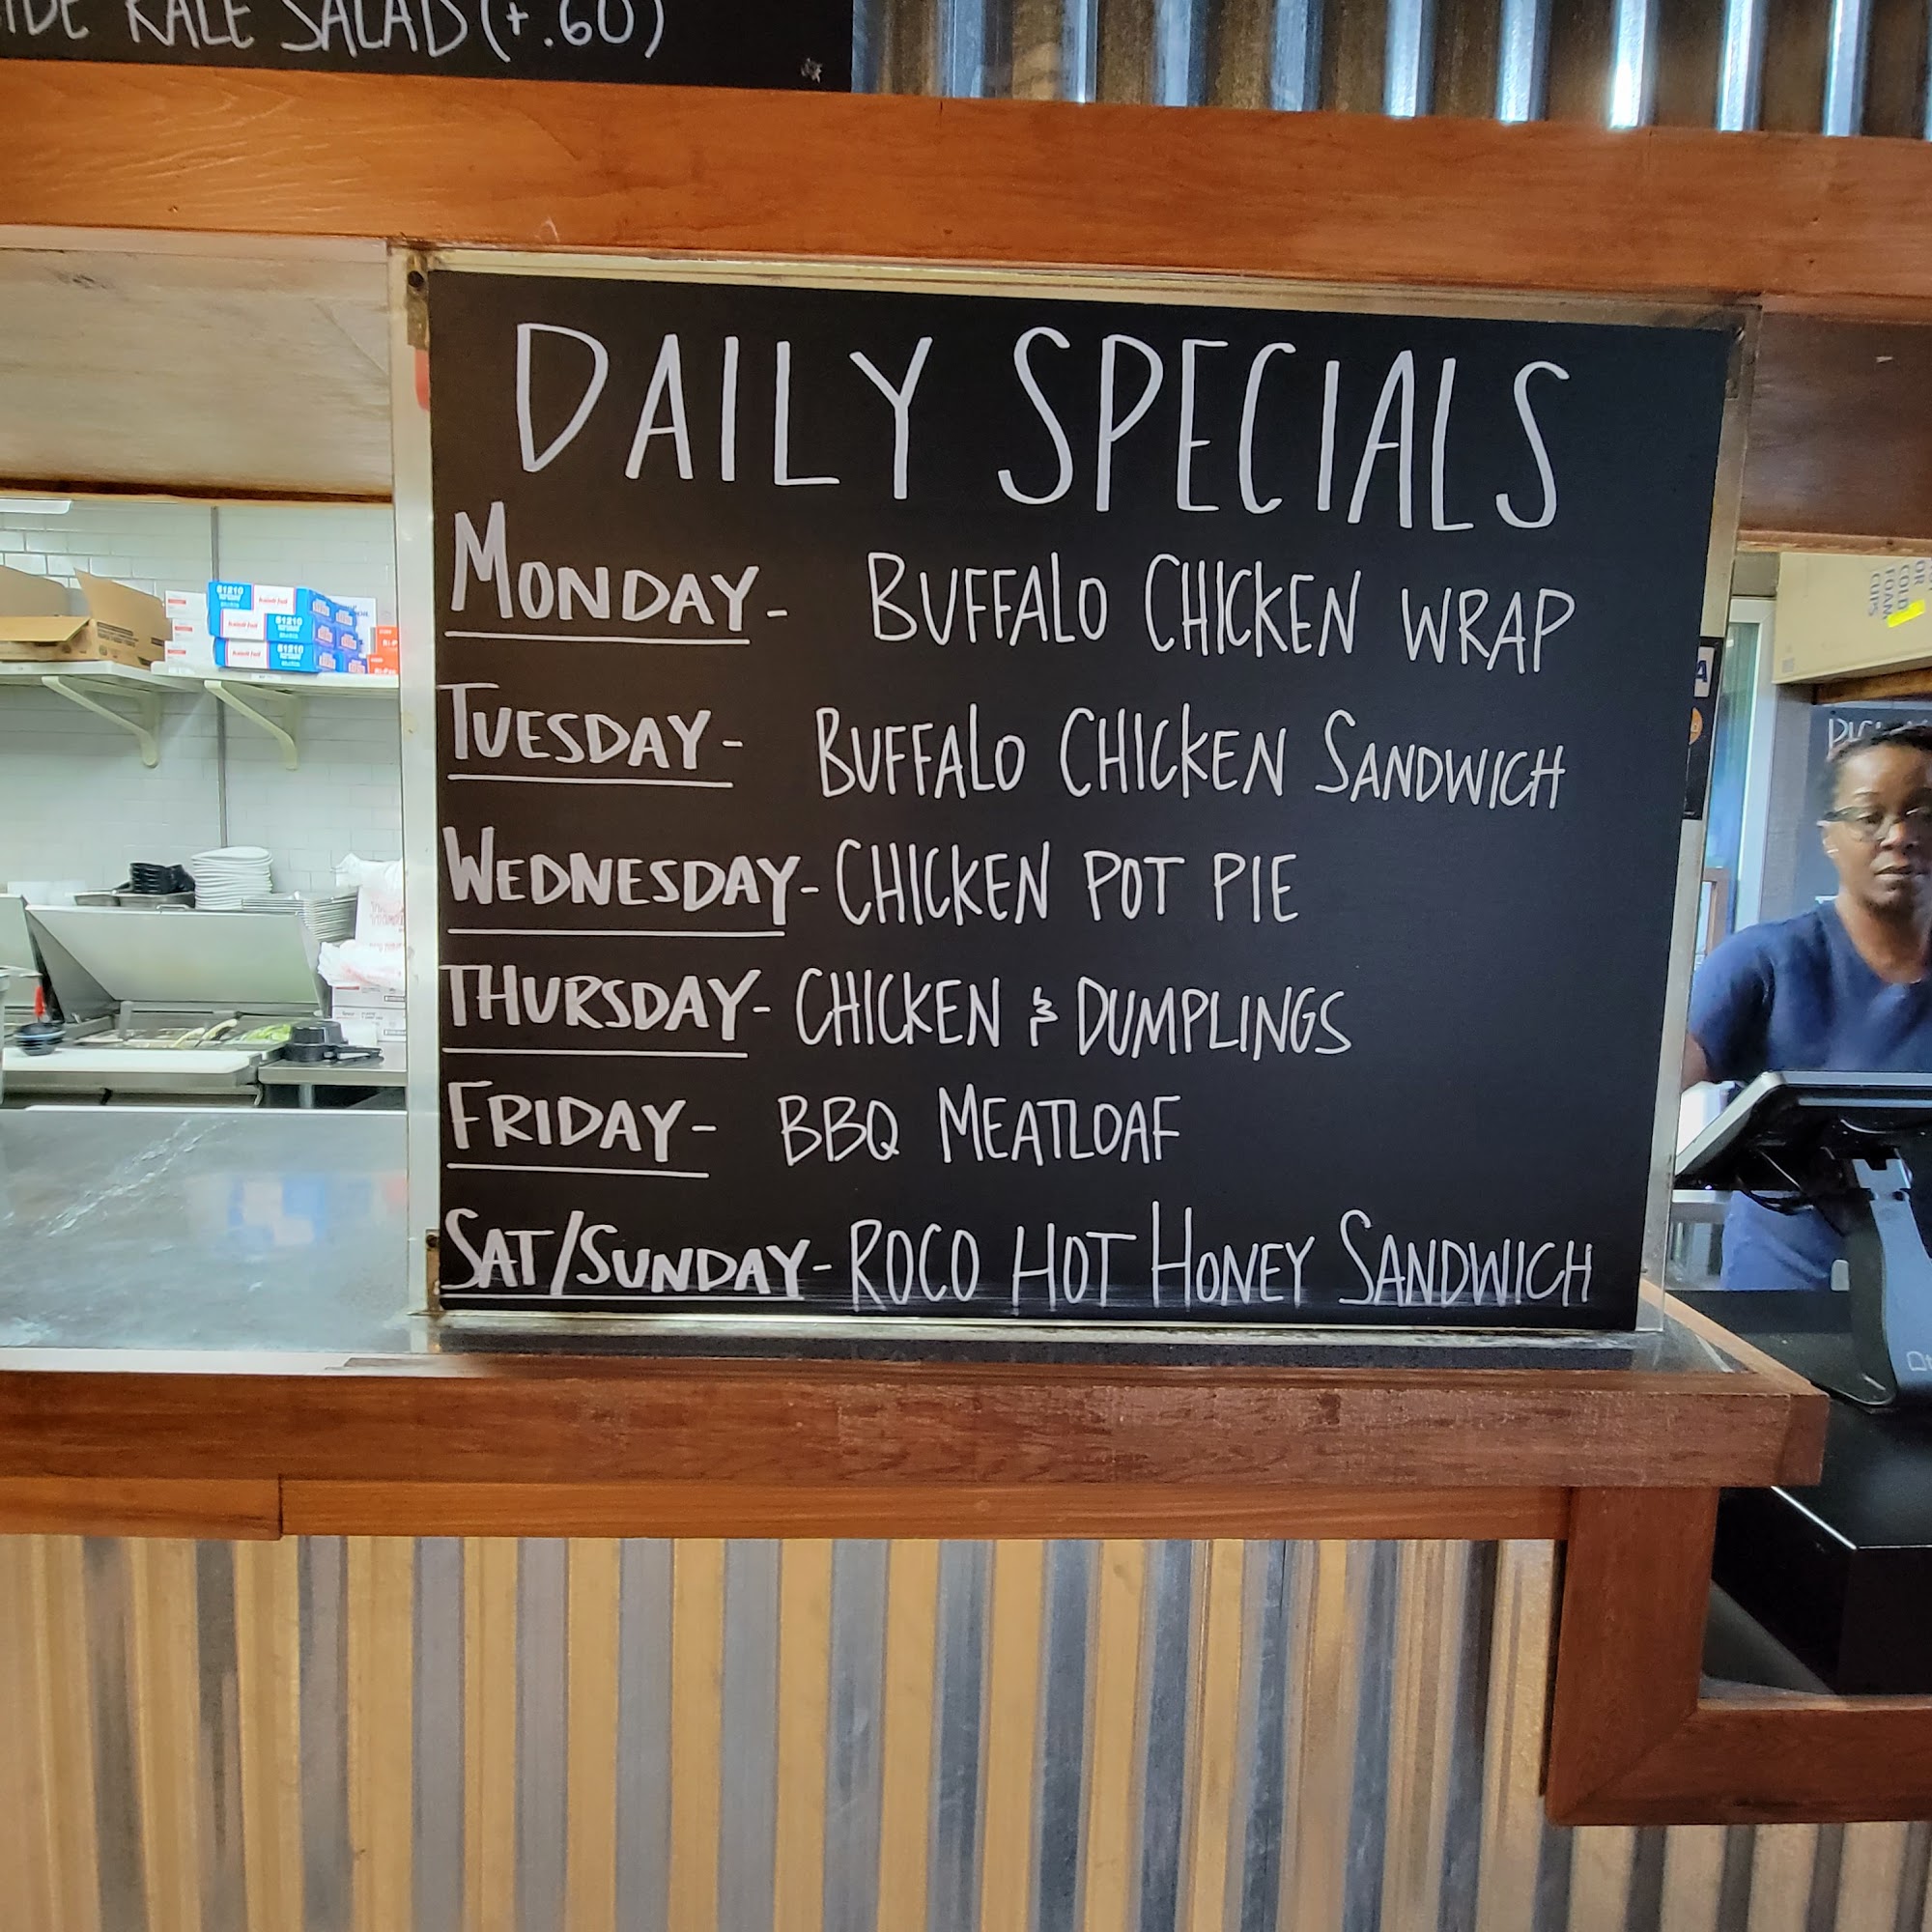 KALE SALAD (+.60)
DAILY SPECIALS
MONDAY- BUFFALO CHICKEN WRAP
TUESDAY- BUFFALO CHICKEN SANDWICH
WEDNESDAY- CHICKEN POT PIE
THURSDAY- CHICKEN & DUMPLINGS
FRIDAY- BBQ MEATLOAF
SAT/SUNDAY- ROCO HOT HONEY SANDWICH
81210
81210
81210
OR
COLD
FOAM
CUPS
A